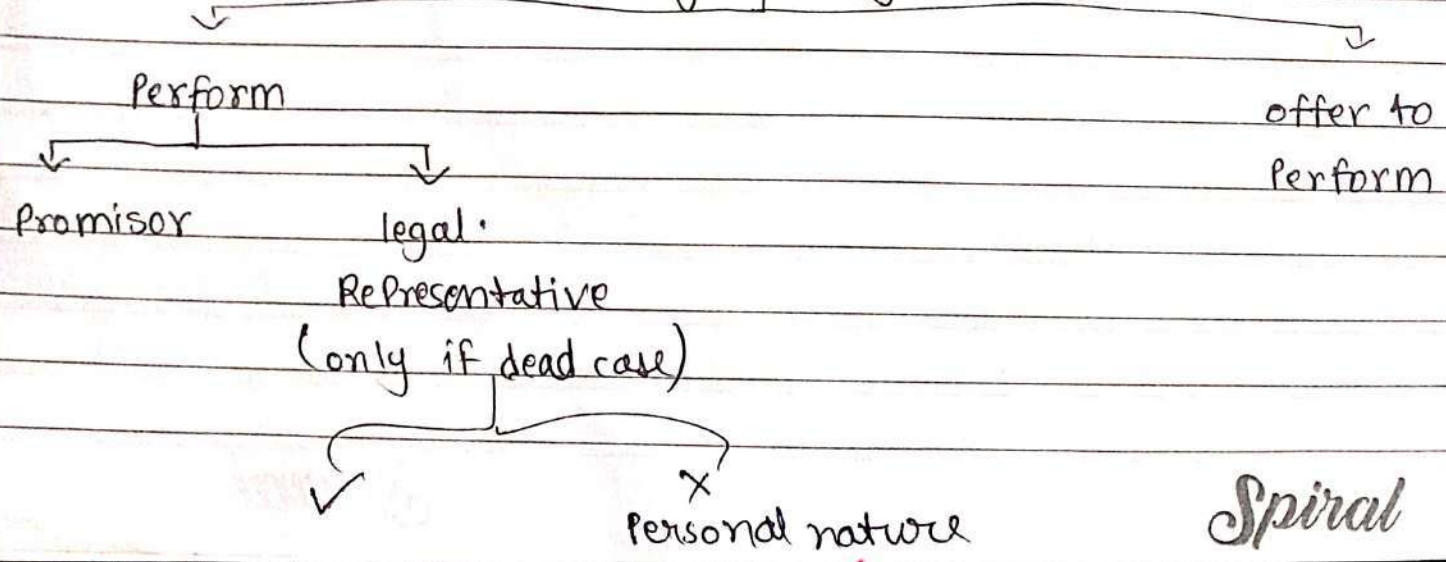 Perform
offer to
Perform
Promisor
legal.
Representative
(only if dead case)
✓
×
Personal nature
Spiral